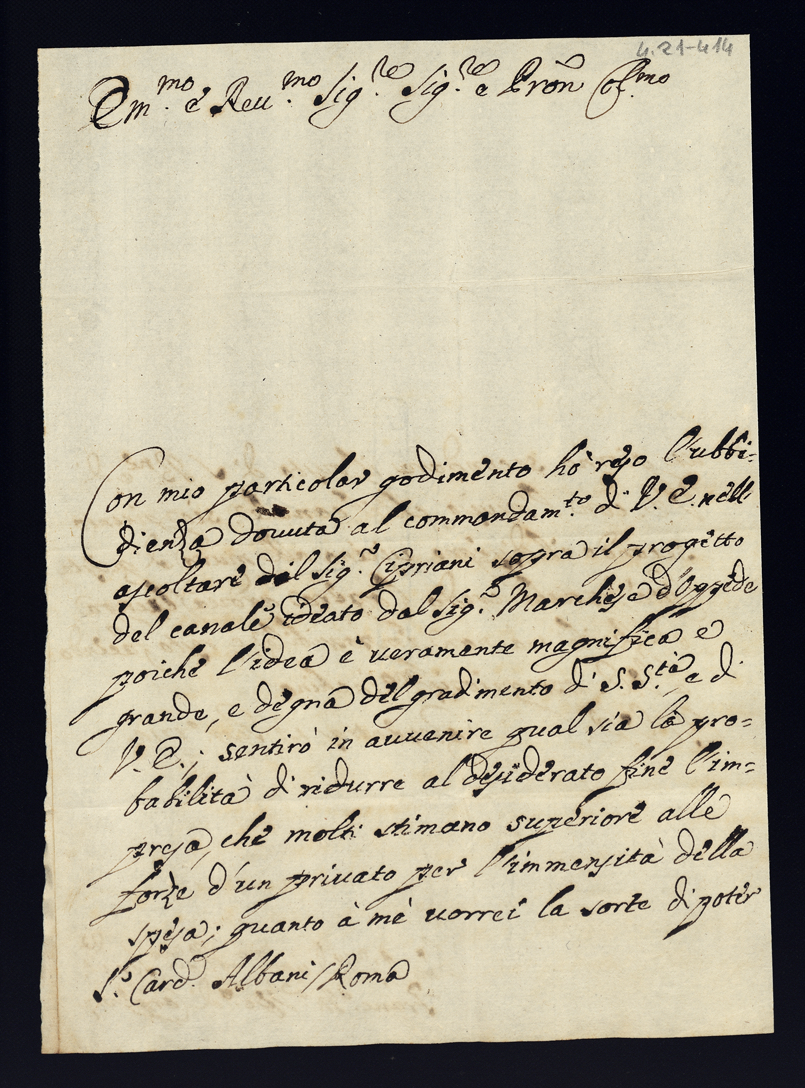 4.21-414
Em.mo e Reu.mo Sig.re Sig.re e Prõn Col.mo
Con mio particolar godimento hò reso l'ubbi-
dienza douuta al commandam.to di V.E. nell
ascoltare dal Sig.r Cipriani sopra il progetto
del canale ideato dal Sig.r Marchese d'Oppede
poiche l'idea è ueramente magnifica e
grande, e degna del gradimento di S. S.tà, e di
V.E.; sentirò in auuenire qual sia la pro-
babilità di ridurre al desiderato fine l'im-
presa, che molti stimano superiore alle
forze d'un priuato per l'immensità della
spesa; quanto à mè uorrei la sorte di poter
S.r Card. Albani / Roma